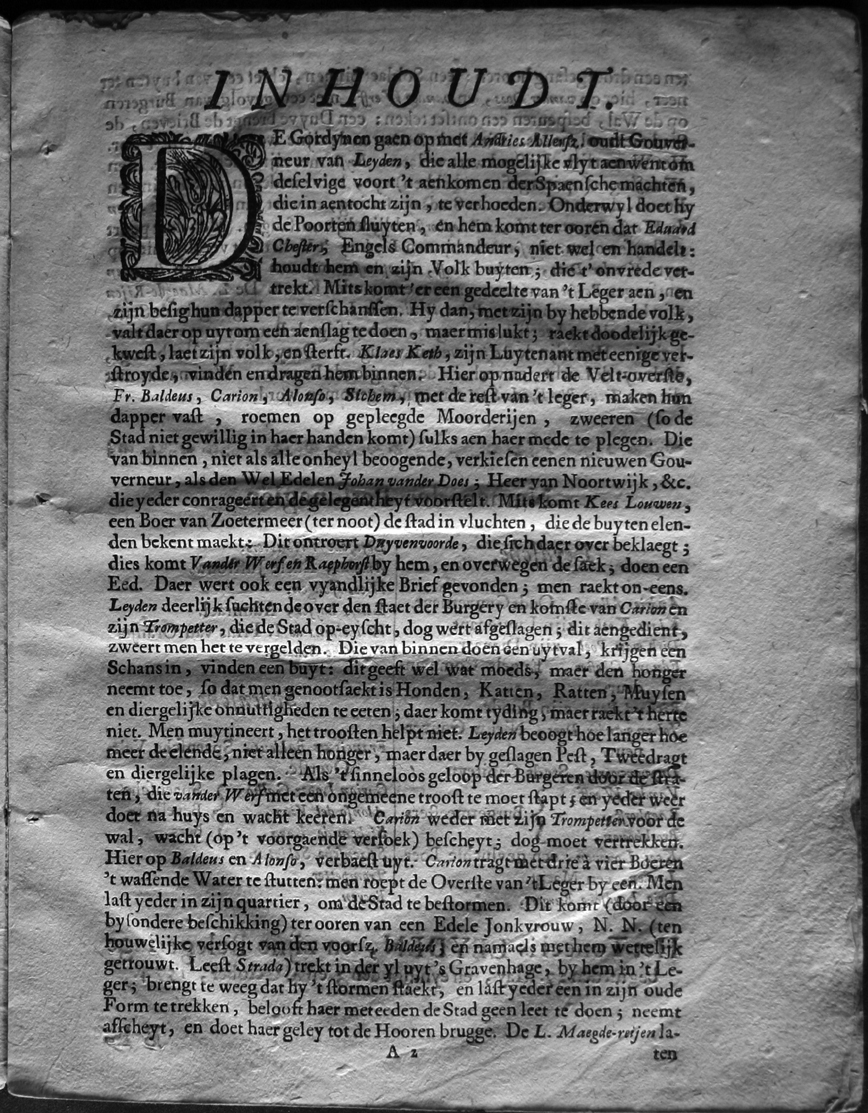 INHOUDT.
DE Gordynen gaen op met Andries Allensz, oudt Gouver-
neur van Leyden, die alle mogelijke vlyt aenwent om
deselvige voort 't aenkomen der Spaensche machten,
die in aentocht zijn, te verhoeden. Onderwyl doet hy
de Poorten sluyten, en hem komt ter ooren dat Eduard
Chester, Engels Commandeur, niet wel en handelt:
houdt hem en zijn Volk buyten; die t'onvrede ver-
trekt. Mits komt 'er een gedeelte van 't Leger aen, en
zijn besig hun dapper te verschanssen. Hy dan, met zijn by hebbende volk,
valt daer op uyt om een aenslag te doen, maer mislukt; raekt doodelijk ge-
kwest, laet zijn volk, en sterft. Klaes Keth, zijn Luytenant met eenige ver-
stroyde, vinden en dragen hem binnen. Hier op nadert de Velt-overste,
Fr. Baldeus, Carion, Alonso, Stchem, met de rest van 't leger, maken hun
dapper vast, roemen op gepleegde Moorderijen, zweeren (so de
Stad niet gewillig in haer handen komt) sulks aen haer mede te plegen. Die
van binnen, niet als alle onheyl beoogende, verkiesen eenen nieuwen Gou-
verneur, als den Wel Edelen Johan vander Does; Heer van Noortwijk, &c.
die yeder conrageert en de gelegentheyt voorstelt. Mits komt Kees Louwen,
een Boer van Zoetermeer (ter noot) de stad in vluchten, die de buyten elen-
den bekent maekt: Dit ontroert Duyvenvoorde, die sich daer over beklaegt;
dies komt Vander Werf en Raephorst by hem, en overwegen de saek; doen een
Eed. Daer wert ook een vyandlijke Brief gevonden; men raekt on-eens.
Leyden deerlijk suchtende over den staet der Burgery en komste van Carion en
zijn Trompetter, die de Stad op-eyscht, dog wert afgeslagen; dit aengedient,
zweert men het te vergelden. Die van binnen doen een uytval, krijgen een
Schans in, vinden een buyt: dit geeft wel wat moeds, maer den honger
neemt toe, so dat men genootsaekt is Honden, Katten, Ratten, Muysen
en diergelijke onnuttigheden te eeten; daer komt tyding, maer raekt 't herte
niet. Men muytineert, het troosten helpt niet. Leyden beoogt hoe langer hoe
meer de elende, niet alleen honger, maer daer by geslagen Pest, Tweedragt
en diergelijke plagen. Als 't sinneloos geloop der Burgeren door de stra-
ten, die vander Werf met een ongemeene troost te moet stapt; en yeder weer
doet na huys en wacht keeren. Carion weder met zijn Trompetter voor de
wal, wacht (op 't voorgaende versoek) bescheyt; dog moet vertrekken.
Hier op Baldeus en Alonso, verbaest uyt. Carion tragt met drie à vier Boeren
't wassende Water te stutten: men roept de Overste van 't Leger by een. Men
last yeder in zijn quartier, om de Stad te bestormen. Dit komt (door een
bysondere beschikking) ter ooren van een Edele Jonkvrouw, N. N. (ten
houwelijke versogt van den voorsz. Baldeus; en namaels met hem wettelijk
getrouwt. Leest Strada) trekt in der yl uyt 's Gravenhage, by hem in 't Le-
ger; brengt te weeg dat hy 't stormen staekt, en last yeder een in zijn oude
Form te trekken, belooft haer met eeden de Stad geen leet te doen; neemt
afscheyt, en doet haer geley tot de Hooren brugge. De L. Maegde-reijen la-
A 2 ten